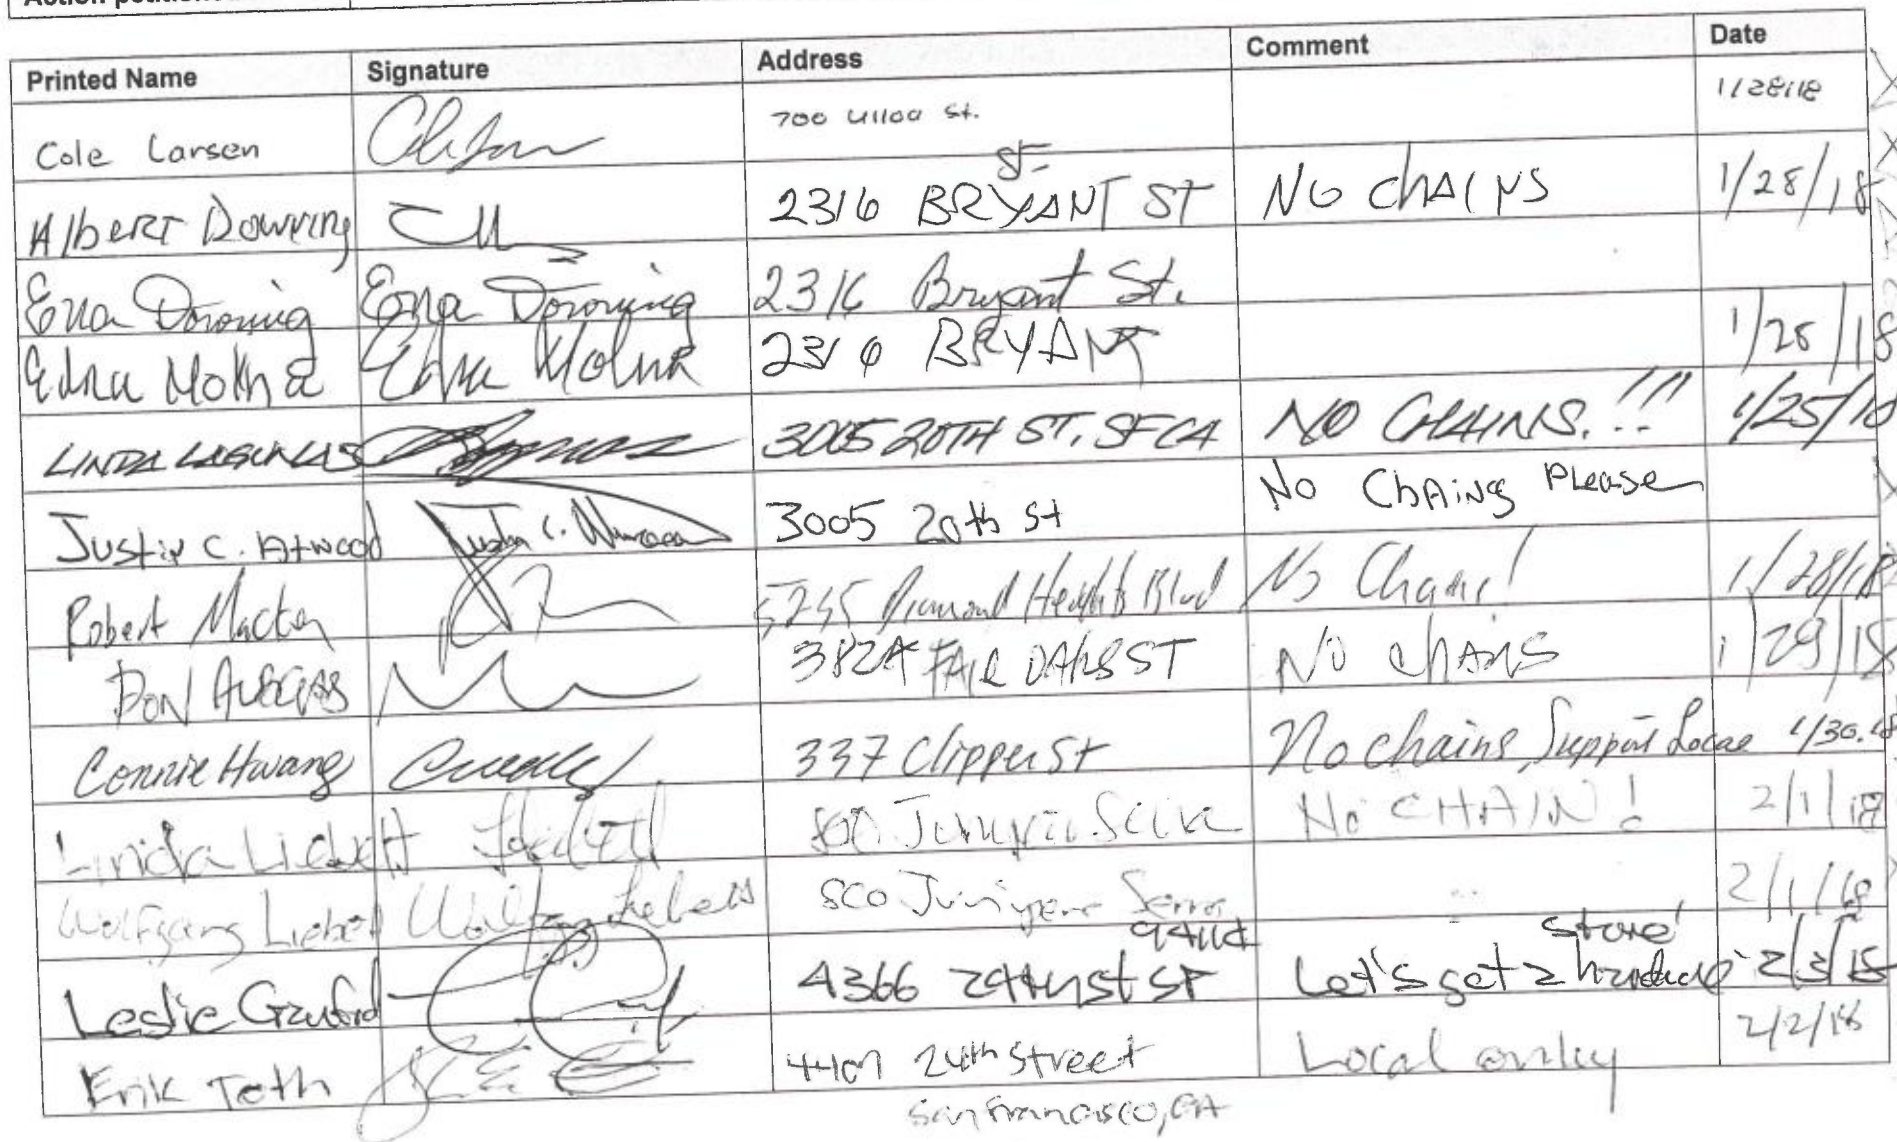 Printed Name Signature Address Comment Date
Cole Larsen 700 Ulloa St. 1/28/18
Albert Downing 2316 BRYANT ST NO ChAINS 1/28/18
St.
2316 Bryant St.
2316 BRYANT 1/28/18
LINDA LAGUNAS 3005 20TH ST, SF CA NO CHAINS.!!! 1/25/18
Justin C. Atwood Justin C. 3005 20th St No ChAins Please
Robert 5245 Diamond Heights Blvd No Chains! 1/28/18
DON 382A FAIR OAKS ST NO ChAINS 1/29/18
Connie Hwang 337 Clipper St No chains, Support Local 1/30.18
Linda Liebelt 800 Junipero Serra No CHAIN! 2/1/18
Wolfgang Liebelt Wolfgang Liebelt 800 Junipero Serra 2/1/18
94114 store
Leslie Crawford 4366 24th St SF Let's get a hardware 2/3/18
Erik Toth 4407 24th Street Local only 2/2/18
San Francisco, CA